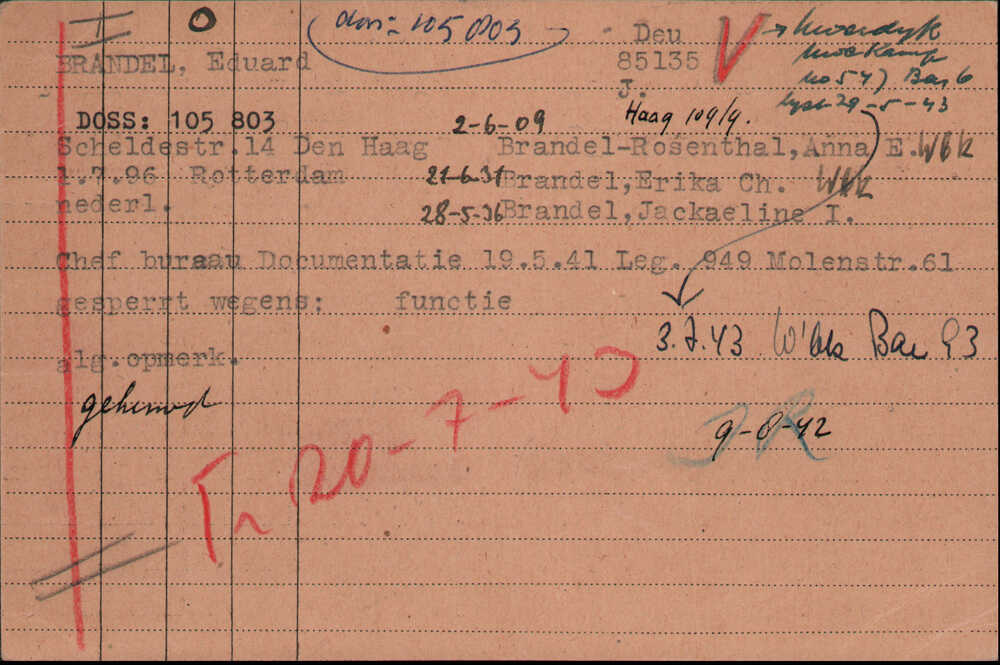 I O dos: 105 803 Deu
BRANDEL, Eduard 85135 V
J.
no 547 Bar 6
29-5-43
DOSS: 105 803 2-6-09 Haag 109/9.
Scheldestr.14 Den Haag Brandel-Rosenthal,Anna E. WBK
1.7.96 Rotterdam 21-6-31 Brandel,Erika Ch. WBK
nederl. 28-5-36 Brandel,Jackaeline I.
Chef buraau Documentatie 19.5.41 Leg. 949 Molenstr.61
gesperrt wegens: functie
3.7.43 W'bk Bar 93
alg.opmerk.
gehuwd
9-8-42
JR
Tr 20-7-43